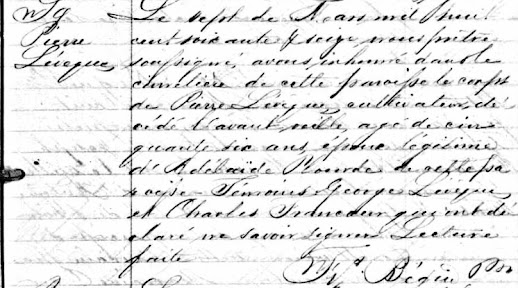 Le sept de Mars mil huit
Pierre cent soixante & seize nous prêtre
Levêque, soussigné, avons inhumé dans le
cimetière de cette paroisse le corps
de Pierre Levêque, cultivateur, dé-
cédé l'avant veille, agé de cin
quante six ans, époux légitime
d'Adélaïde Plourde de cette pa
roisse. Témoins George Levêque
et Charles Francoeur qui ont dé
claré ne savoir signer. Lecture
faite.
Bégin Ptre